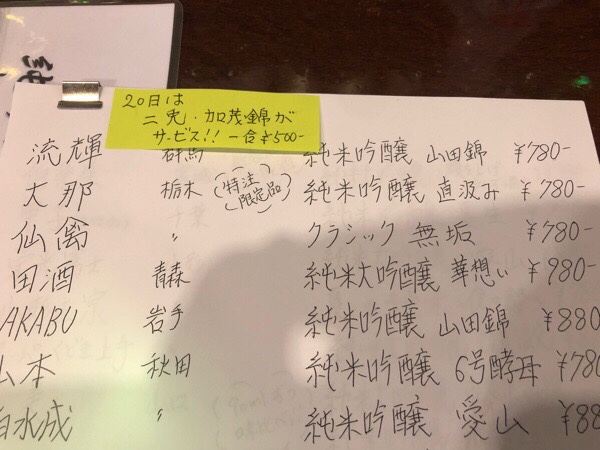 20日は
二兎・加茂錦が
サービス!! 一合¥500-
流輝 群馬 純米吟醸 山田錦 ¥780-
大那 栃木 (特注限定品) 純米吟醸 直汲み ¥780-
仙禽 〃 クラシック 無垢 ¥780-
田酒 青森 純米大吟醸 華想い ¥980-
AKABU 岩手 純米吟醸 山田錦 ¥880
山本 秋田 純米吟醸 6号酵母 ¥780
白水成 〃 純米吟醸 愛山 ¥88